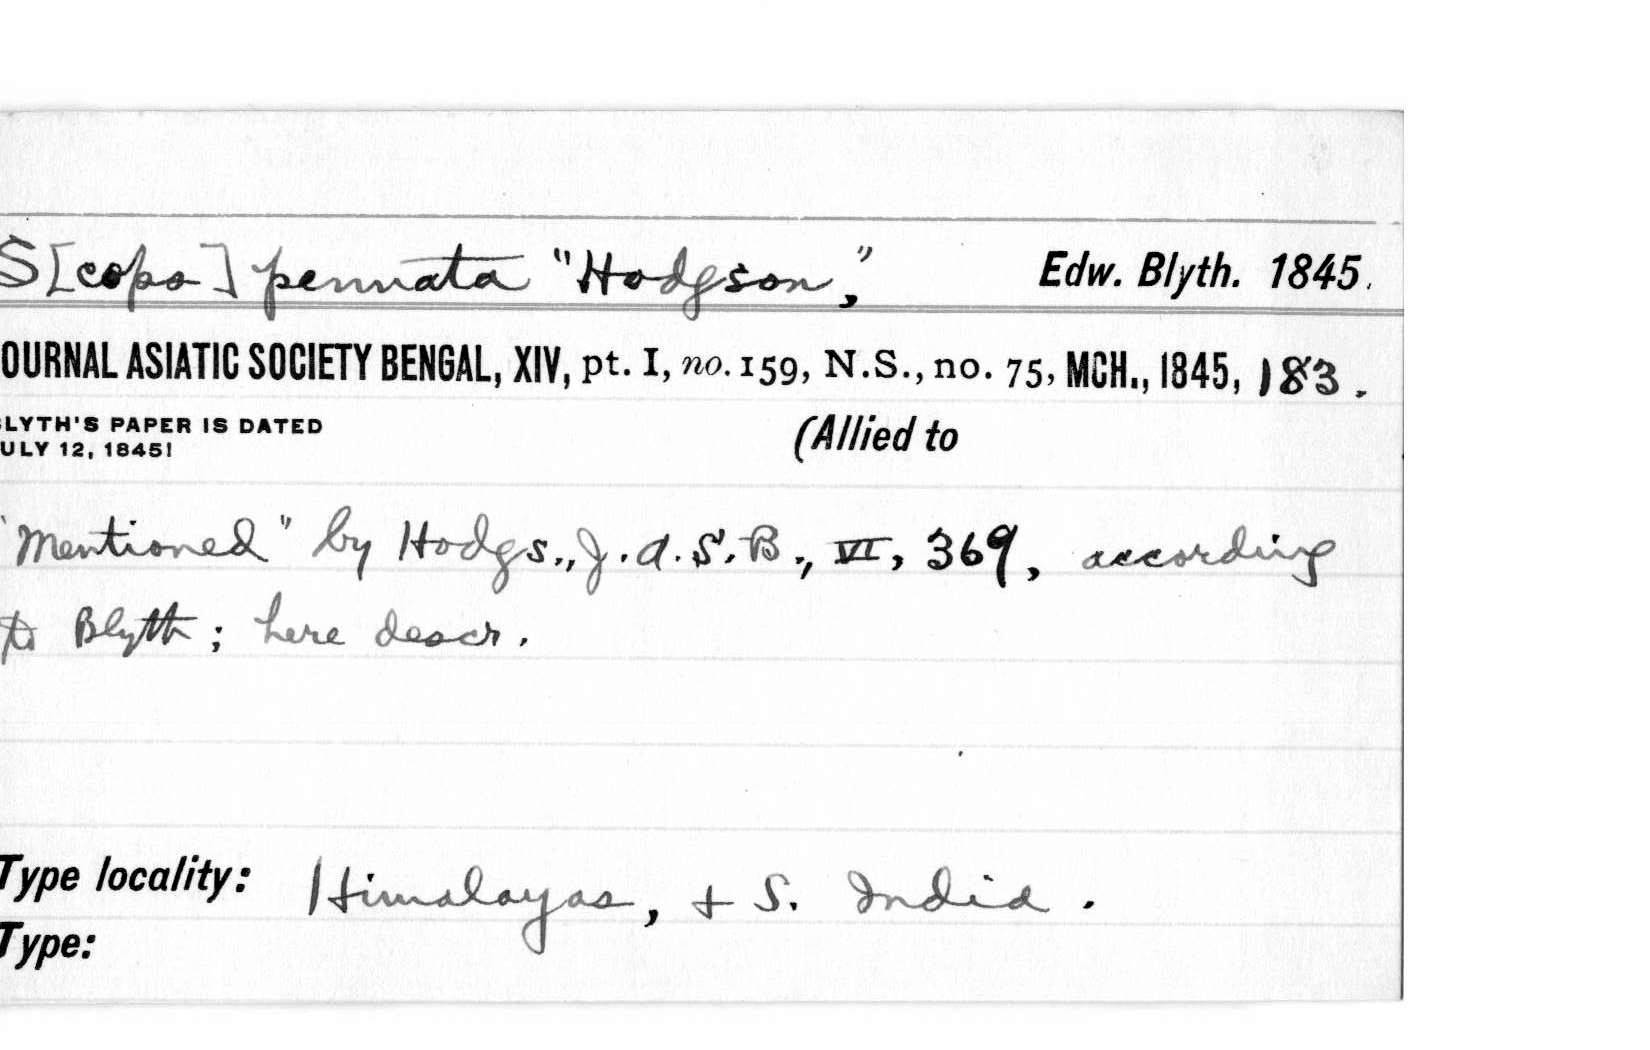 S[cops] pennata "Hodgson," Edw. Blyth. 1845.
OURNAL ASIATIC SOCIETY BENGAL, XIV, pt. I, no. 159, N.S., no. 75, MCH., 1845, 183.
LYTH'S PAPER IS DATED
ULY 12, 1845! (Allied to
"Mentioned" by Hodgs., J.A.S.B., VI, 369, according
to Blyth; here descr.
Type locality: Himalayas, + S. India.
Type: